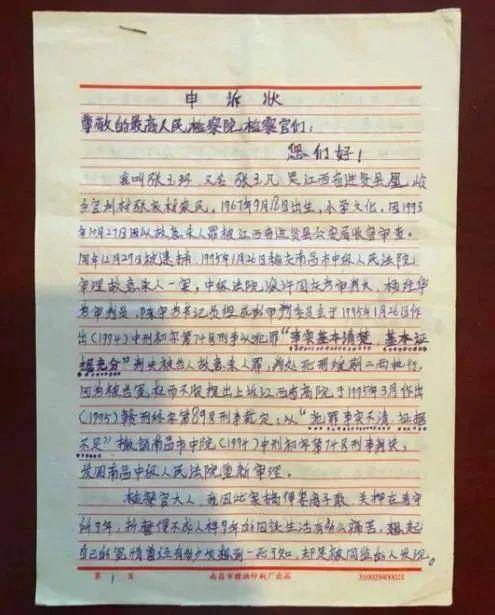 申诉状
尊敬的最高人民检察院检察官们：
您们好！
我叫张玉环 又名 张玉凡 是江西省进贤县凰岭
乡官圳村张家村农民，1967年9月18日出生，小学文化，因1993
年10月27日因以故意杀人罪被江西省进贤县公安局收审审查。
同年12月29日被逮捕，1995年1月26日在南昌市中级人民法院
审理故意杀人一案，中级法院
为审判员，书记员组成 于1995年1月26日作
出(1994)中刑初字第74号刑事以犯罪“事实基本清楚，基本证
据充分”判决被告人故意杀人罪，判处死刑缓期二两执行，
因为被告冤枉而不服提出上诉江西省高院于1995年3月作出
(1995)赣刑终字第89号刑事裁定：以“犯罪事实不清，证据
不足”撤销南昌市中院(1994)中刑初字第74号刑事判决；
发回南昌中级人民法院重新审理。
检察官大人，我因此案搞得妻离子散，关押在看守
所9年，折磨得不成人样9年的囚徒生活有多么痛苦，想起
自己的冤情曾经有多少次想到一死了知，却是被同监的人发现。
第 1 页
南昌市赣滨印刷厂出品
310029400021